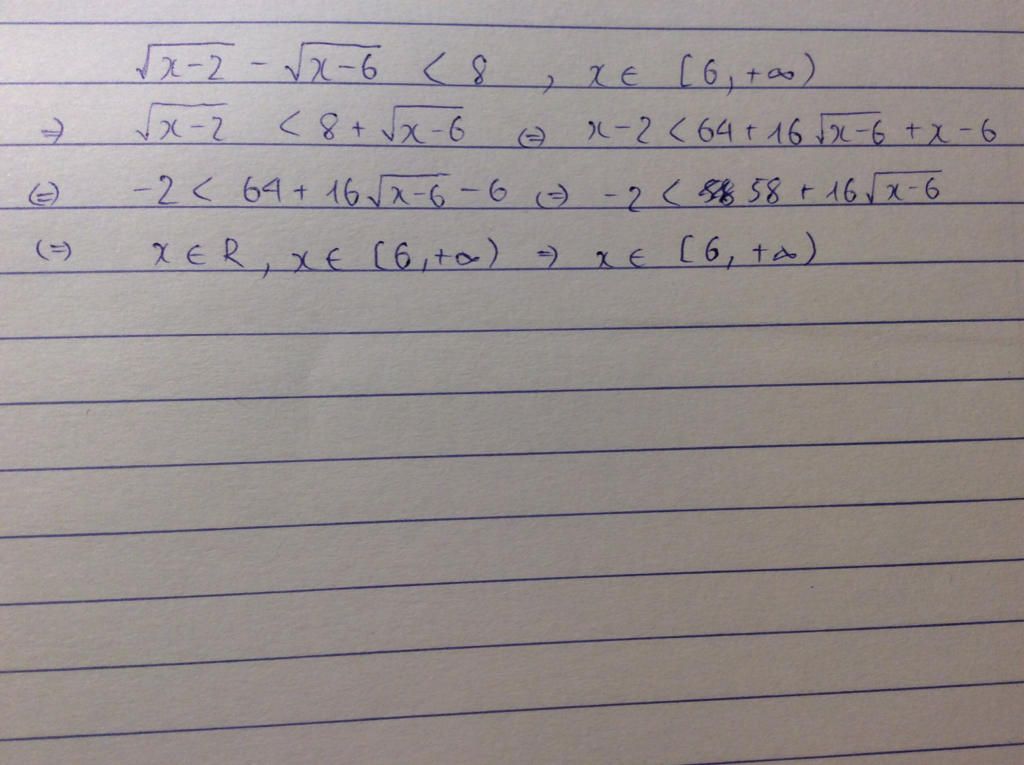 √(x-2) - √(x-6) < 8 , x ∈ [6, +∞)
⇒ √(x-2) < 8 + √(x-6) (=) x-2 < 64 + 16√(x-6) + x - 6
(=) -2 < 64 + 16√(x-6) - 6 (=) -2 < 58 + 16√(x-6)
(=) x ∈ R, x ∈ [6, +∞) ⇒ x ∈ [6, +∞)